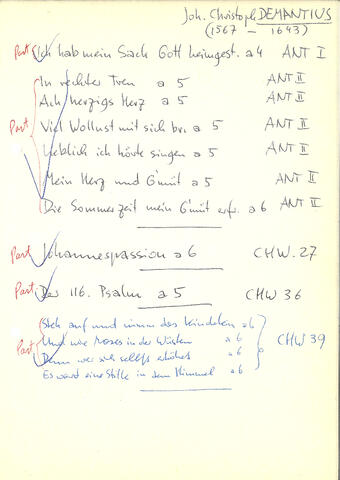 Joh. Christoph DEMANTIUS
(1567 – 1643)
Part Ich hab mein Sach Gott heimgest. a 4 ANT I
In rechter Treu a 5 ANT II
Ach herzigs Herz a 5 ANT II
Part Viel Wollust mit sich br. a 5 ANT II
Lieblich ich hörte singen a 5 ANT II
Mein Herz und G'müt a 5 ANT II
Die Sommerzeit mein G'müt erfr. a 6 ANT II
Part Johannespassion a 6 CHW. 27
Part Der 116. Psalm a 5 CHW 36
Steh auf und nimm das Kindelein a 6
Part Und wie Moses in der Wüsten a 6 CHW 39
Denn wer sich selbst erhöhet a 6
Es ward eine Stille in dem Himmel a 6